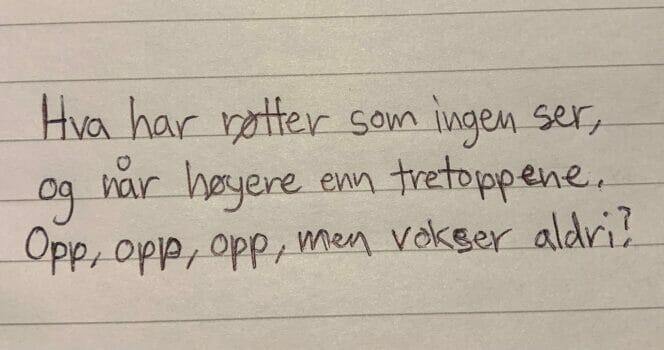 Hva har røtter som ingen ser,
og når høyere enn tretoppene.
Opp, opp, opp, men vokser aldri?